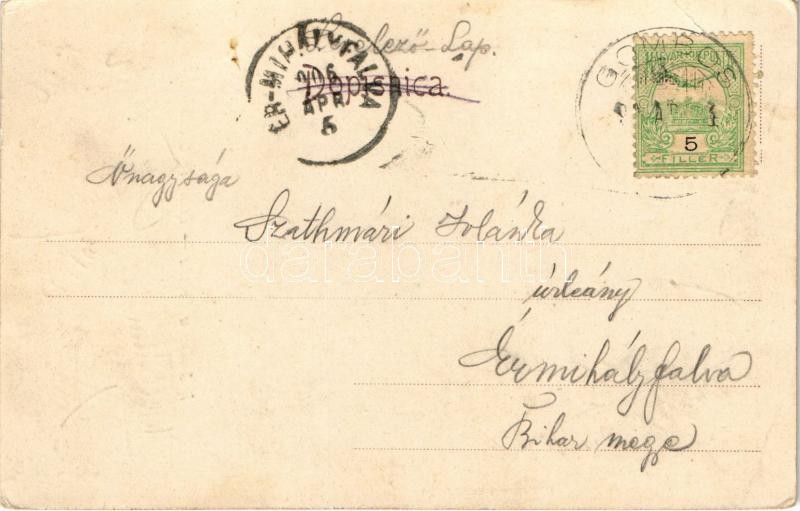 Levelező-Lap.
Dopisnica.
ÉR-MIHÁLYFALVA
906
APR
5
GOMBOS
MAGYAR KIR. POSTA
5
FILLER
Őnagysága
Szathmári Jolánka
darabanth
úrleány
Érmihályfalva
Bihar mege